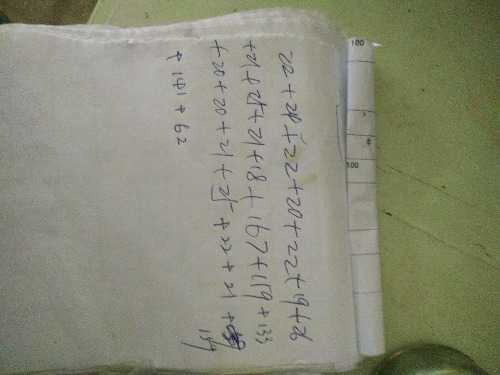 22+28+22+20+22+19+26
+21+25+21+18+167+159+133
+20+20+21+25+22+21+
159
+141+62
100
100